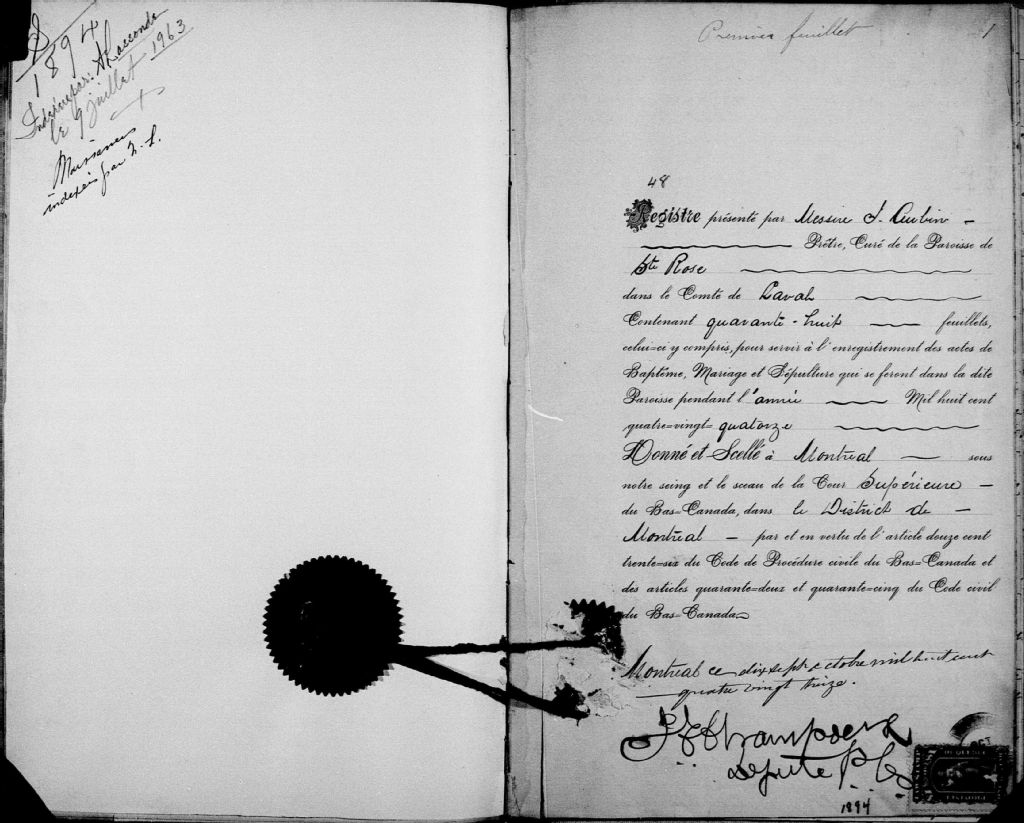 S
1894
Indexé par: A. Lacconde
le 9 juillet 1963
indexés par
Premier feuillet 1
48
Registre présenté par Messire J. Aubin
Prêtre, Curé de la Paroisse de
Ste Rose
dans le Comté de Laval
Contenant quarante-huit feuillets,
celui=ci y compris, pour servir à l'enregistrement des actes de
Baptême, Mariage et Sépulture qui se feront dans la dite
Paroisse pendant l'année Mil huit cent
quatre=vingt=quatorze
Donné et Scellé à Montréal sous
notre seing et le sceau de la Cour Supérieure
du Bas=Canada, dans le District de
Montréal par et en vertu de l'article douze cent
trente=six du Code de Procédure civile du Bas=Canada et
des articles quarante=deux et quarante=cinq du Code civil
du Bas=Canada
Montréal ce dix sept octobre mil huit cent
quatre vingt treize.
député P. C. S.
1894